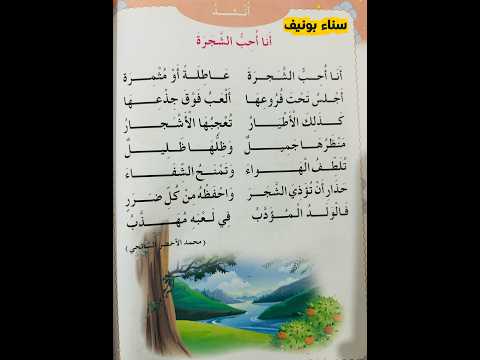 أُنْشِدُ
سناء بونيف
أَنَا أُحِبُّ الشَّجَرَة
أَنَا أُحِبُّ الشَّجَرَة عَاطِلَةً أَوْ مُثْمِرَة
أَجْلِسُ تَحْتَ فُرُوعِهَا أَلْعَبُ فَوْقَ جِذْعِهَا
كَذَلِكَ الْأَطْيَارُ تُعْجِبُهَا الْأَشْجَارُ
مَنْظَرُهَا جَمِيلٌ وَظِلُّهَا ظَلِيلٌ
تُلَطِّفُ الْهَوَاءَ وَتَمْنَحُ الشِّفَاءَ
حَذَارِ أَنْ تُؤْذِي الشَّجَر وَاحْفَظْهُ مِنْ كُلِّ ضَرَرِ
فَالْوَلَدُ الْمُؤَدَّبُ فِي لَعْبِهِ مُهَذَّبُ
(محمد الأخضر السائحي)